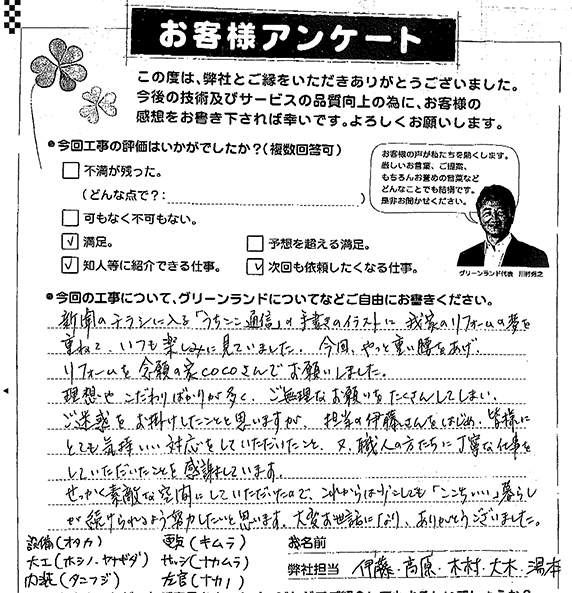 お客様アンケート
この度は、弊社とご縁をいただきありがとうございました。
今後の技術及びサービスの品質向上の為に、お客様の
感想をお書き下されば幸いです。よろしくお願いします。
今回工事の評価はいかがでしたか？（複数回答可）
不満が残った。
（どんな点で？： ）
可もなく不可もない。
✓ 満足。
予想を超える満足。
✓ 知人等に紹介できる仕事。
✓ 次回も依頼したくなる仕事。
お客様の声が私たちを動くします。
厳しいお言葉、ご提案、
もちろんお誉めの言葉など
どんなことでも結構です。
是非お聞かせください。
グリーンランド代表
今回の工事について、グリーンランドについてなどご自由にお書きください。
新聞のチラシに入る「うちここ通信」の手書きのイラストに 我家のリフォームの夢を
重ねて、いつも楽しみに見ていました。今回、やっと重い腰をあげ、
リフォームを念願の家cocoさんでお願いしました。
理想や こだわりばかりが多く、ご無理なお願いをたくさんしてしまい、
ご迷惑をお掛けしたことと思いますが、担当の伊藤さんをはじめ、皆様に
とても気持いい対応をしていただいたこと、又、職人の方たちに丁寧な仕事を
していただいたことを感謝しています。
せっかく素敵な空間にしていただけたので、これからは少しでも「ここちいい」暮らし
が続けられるよう努力したいと思います。大変お世話になり、ありがとうございました。
設備（オタカ）
電気（キムラ）
お名前
大工（ホシノ・ヤナギダ）
サッシ（ナカムラ）
弊社担当 伊藤・高原・木村・大木・湯本
内装（タニフジ）
左官（ナカノ）